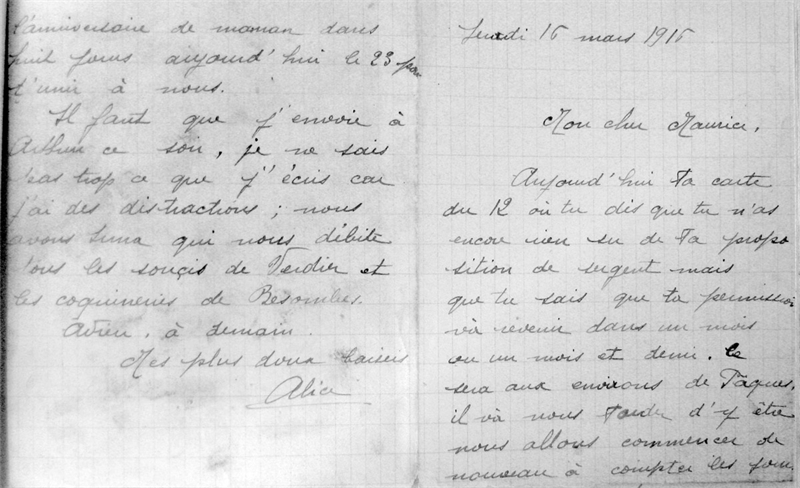 Jeudi 16 mars 1916
Mon cher Maurice,
Aujourd'hui ta carte
du 12 où tu dis que tu n'as
encore rien su de ta propo
sition de sergent mais
que tu sais que ta permission
và revenir dans un mois
ou un mois et demi. Ce
sera aux environs de Pâques,
il và nous tarder d'y être
nous allons commencer de
nouveau à compter les jours
l'anniversaire de maman dans
huit jours aujourd'hui le 23 pour
t'unir à nous.
Il faut que j'envoie à
Arthur ce soir, je ne sais
pas trop ce que j'écris car
j'ai des distractions ; nous
avons qui nous débite
tous les souçis de Verdier et
les coquineries de Besombes.
Adieu, à demain.
Mes plus doux baisers
Alice